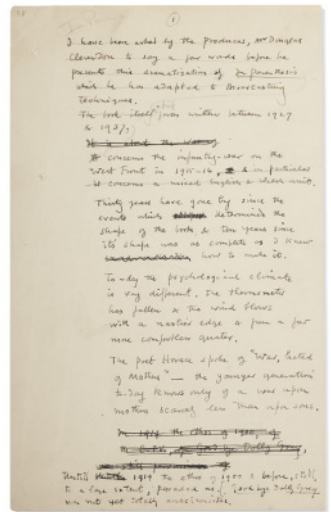 1
I have been asked by the producer, Mr Douglas
Cleverdon to say a few words before he
presents this dramatization of In Parenthesis
which he has adapted to Broadcasting
techniques.
The book itself was written between 1927
& 1937,
It is about the war
It concerns the infantry-war on the
West Front in 1915-16, & in particular
it concerns a mixed English & Welsh unit.
Thirty years have gone by since the
events which determined the
shape of the book & ten years since
its shape was as complete as I knew
how to make it.
To-day the psychological climate
is very different, the thermometer
has fallen & the wind blows
with a nastier edge & from a far
more compassless quarter.
The poet Horace spoke of "War, hated
of Mothers" — the younger generation
to-day knows only of a war upon
mothers scarcely less than upon sons.
In 1914 the ethos of 1900, of
the of God by Dolly Gray,
still
Until 1914 the ethos of 1900 & before, still,
to a large extent, pervaded us. Goodbye Dolly Grey
was not yet totally anachronistic.